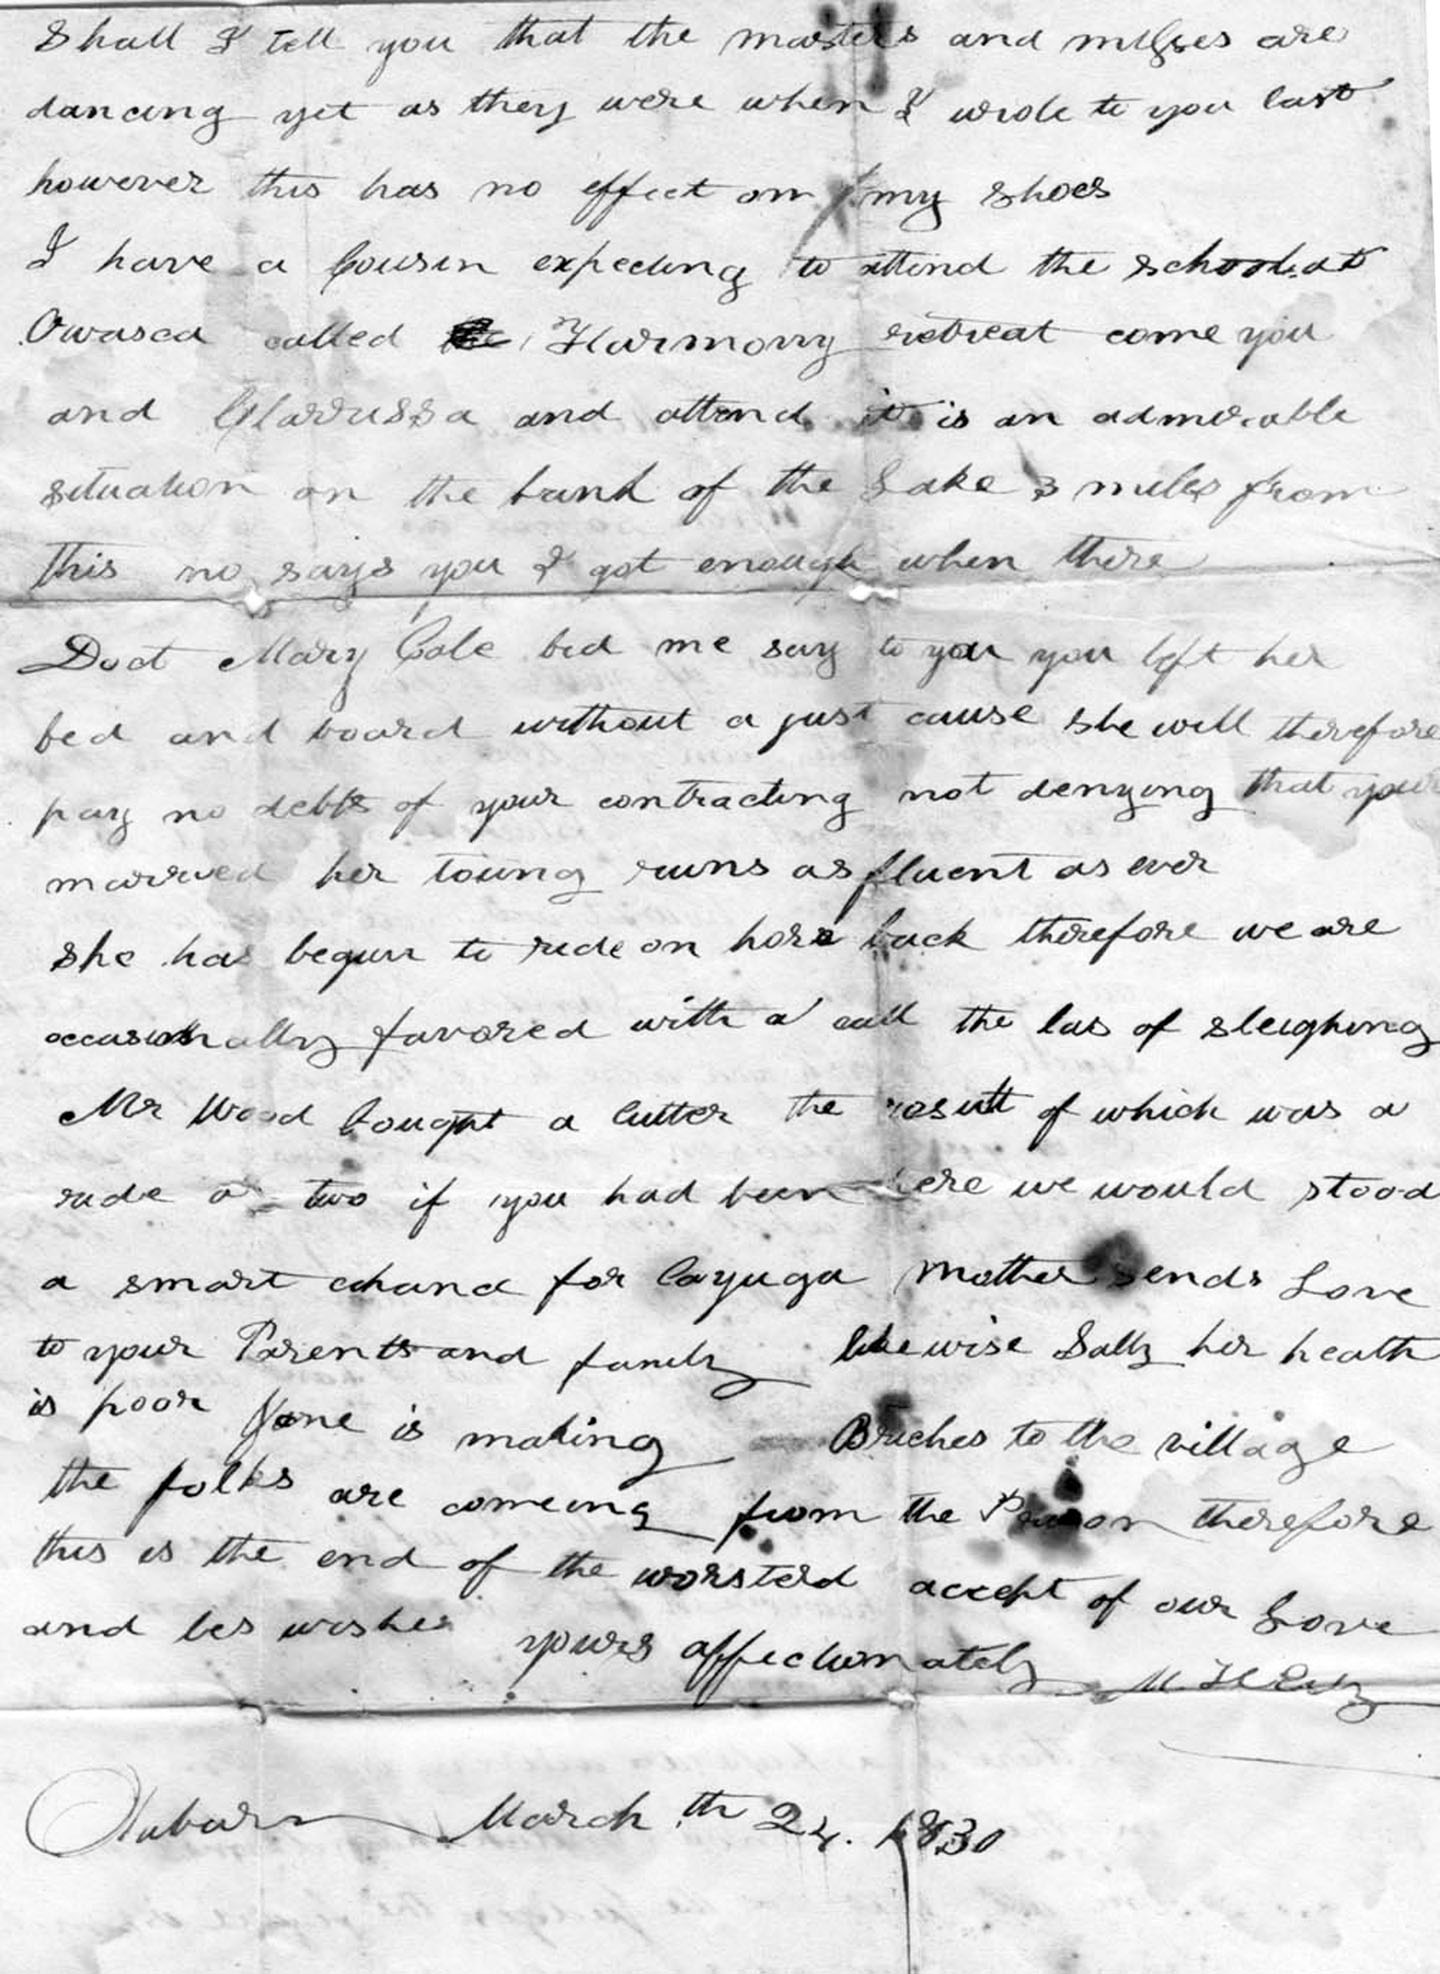 Shall I tell you that the masters and misses are
dancing yet as they were when I wrote to you last
however this has no effect on my shoes
I have a Cousin expecting to attend the school at
Owasca called Harmony retreat come you
and Clarrussa and attend it is an admirable
situation on the bank of the Lake 3 miles from
this no says you I got enough when there
Doct Mary Cole bid me say to you you left her
bed and board without a just cause she will therefore
pay no debts of your contracting not denying that your
married her toung runs as fluent as ever
she has begun to ride on hors back therefore we are
occasionally favored with a call the las of sleighing
Mr Wood bought a Cutter the result of which was a
ride or two if you had been here we would stood
a smart chanc for Cayuga Mother sends Love
to your Parents and family likewise Sally her heath
is poor Jane is making Briches to the village
the folks are comeing from the therefore
this is the end of the worsterd accept of our Love
and bes wishes yours affectionately
Auburn March th 24. 1830